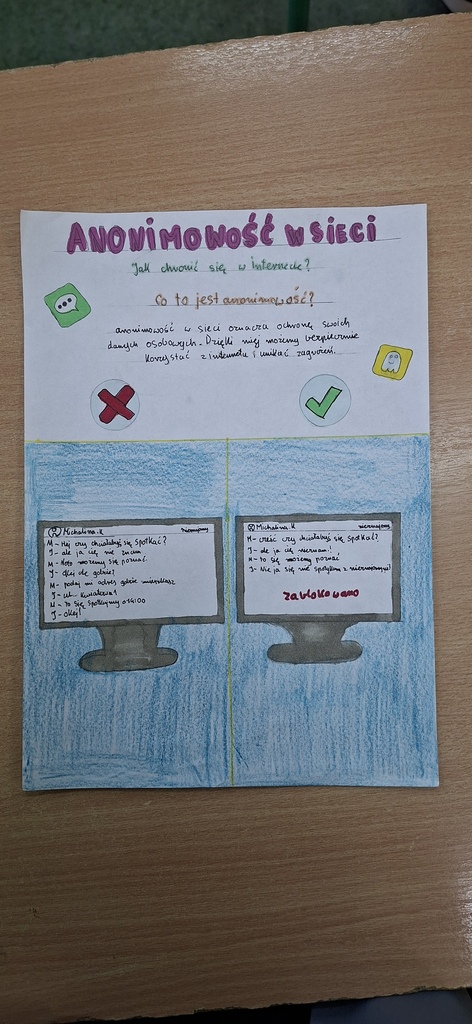 ANONIMOWOŚĆ W SIECI
Jak chronić się w internecie?
Co to jest anonimowość?
anonimowość w sieci oznacza ochronę swoich
danych osobowych. Dzięki niej możemy bezpiecznie
korzystać z internetu i unikać zagrożeń.
Michalina.K nieznajomy
M - Hej czy chciałabyś się spotkać?
J - ale ja cię nie znam
M - Noto możemy się poznać
J - Okej ale gdzie?
M - podaj mi adres gdzie mieszkasz
J - ul. Kwiatowa 1
M - to się spotkajmy o 14:00
J - Okej!
Michalina.K nieznajomy
M - cześć czy chciałabyś się spotkać?
J - ale ja cię nieznam!
M - to się możemy poznać
J - Nie ja się nie spotykam z nieznajomymi!
zablokowano